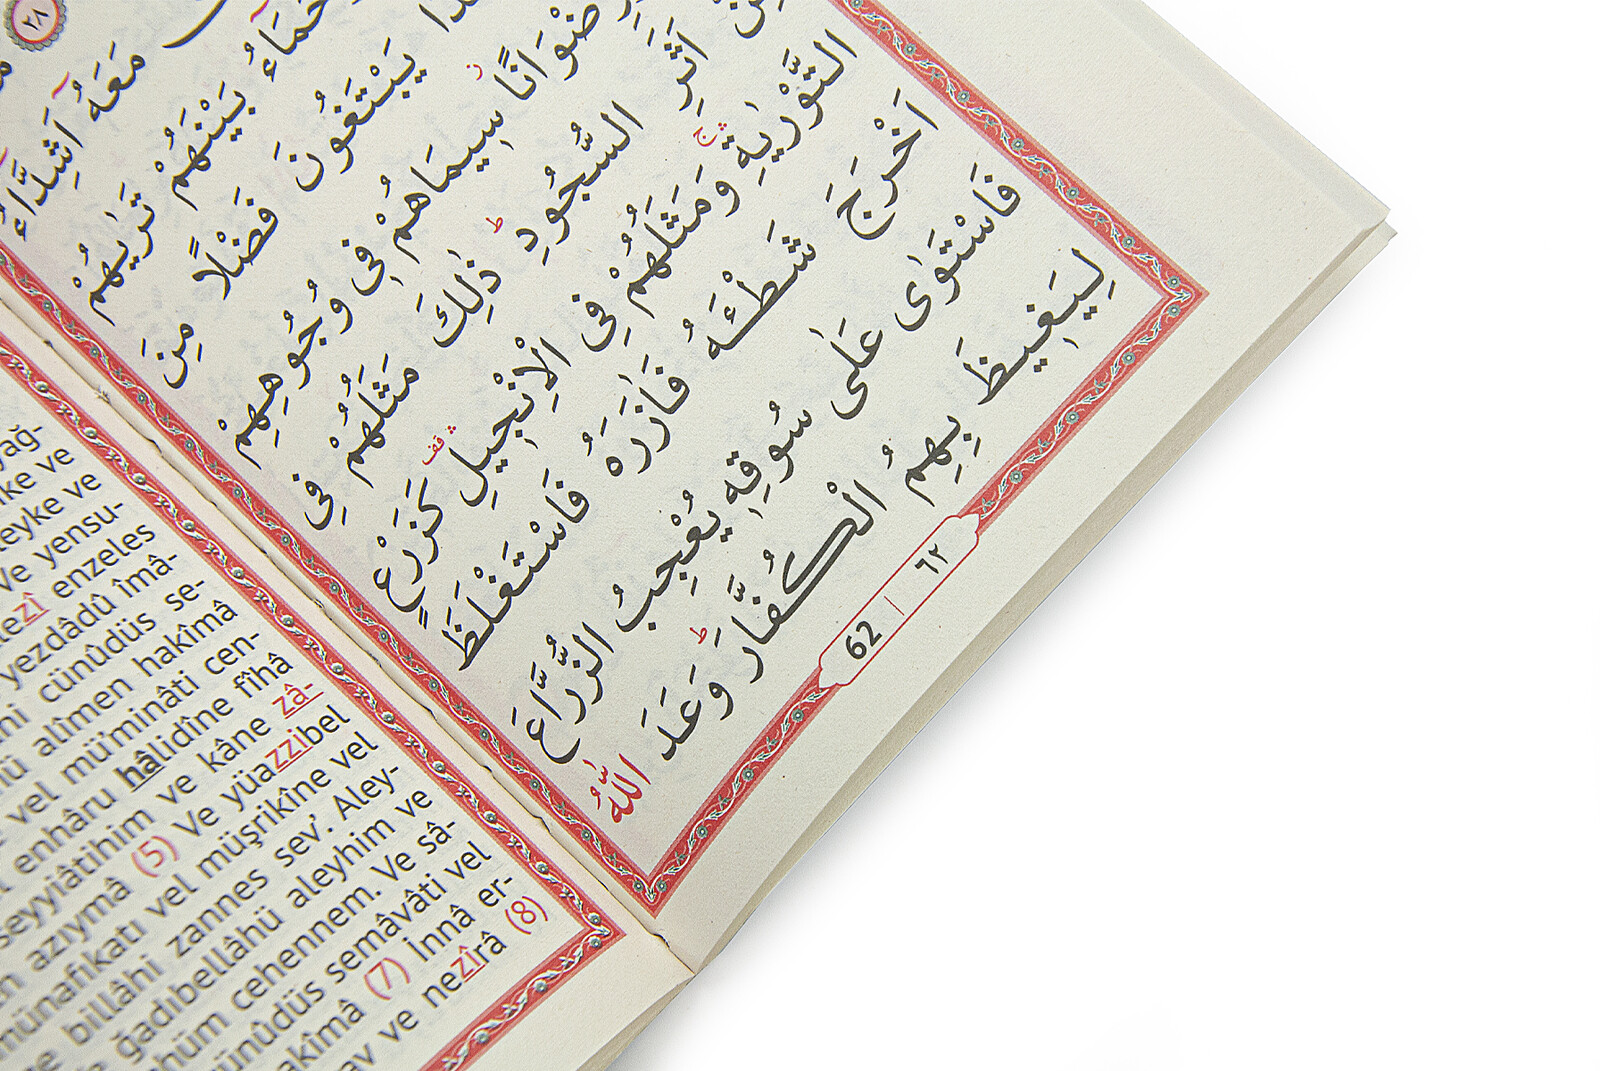 ٢٨
مَعَهُٓ اَشِدَّٓاءُ
بَيْنَهُمْ تَرٰيهُمْ
يَبْتَغُونَ فَضْلًا مِنَ
سٖيمَاهُمْ فٖى وُجُوهِهِمْ
اَثَرِ السُّجُودِ ط ذٰلِكَ مَثَلُهُمْ فِى
التَّوْرٰيةِ ج وَمَثَلُهُمْ فِى الْاِنْجٖيلِ قف كَزَرْعٍ
اَخْرَجَ شَطْـَٔهُ فَاٰزَرَهُ فَاسْتَغْلَظَ
فَاسْتَوٰى عَلٰى سُوقِهٖ يُعْجِبُ الزُّرَّاعَ
لِيَغٖيظَ بِهِمُ الْكُفَّارَ ط وَعَدَ اللّٰهُ
62 | ٦٢
yağ-
ve
leyke ve
Ve yensu-
lezî enzeles
yezdâdû îmâ-
cünûdüs se-
alîmen hakîmâ
vel mü'minâti cen-
enhâru hâlidîne fîhâ
seyyiâtihim ve kâne zâ-
azıymâ (5) Ve yüazzibel
münafikatı vel müşrikîne vel
billâhi zannes sev'. Aley-
ğadıbellâhü aleyhim ve
hüm cehennem. Ve sâ-
ünûdüs semâvâti vel
akîmâ (7) İnnâ er-
ve nezîrâ (8)